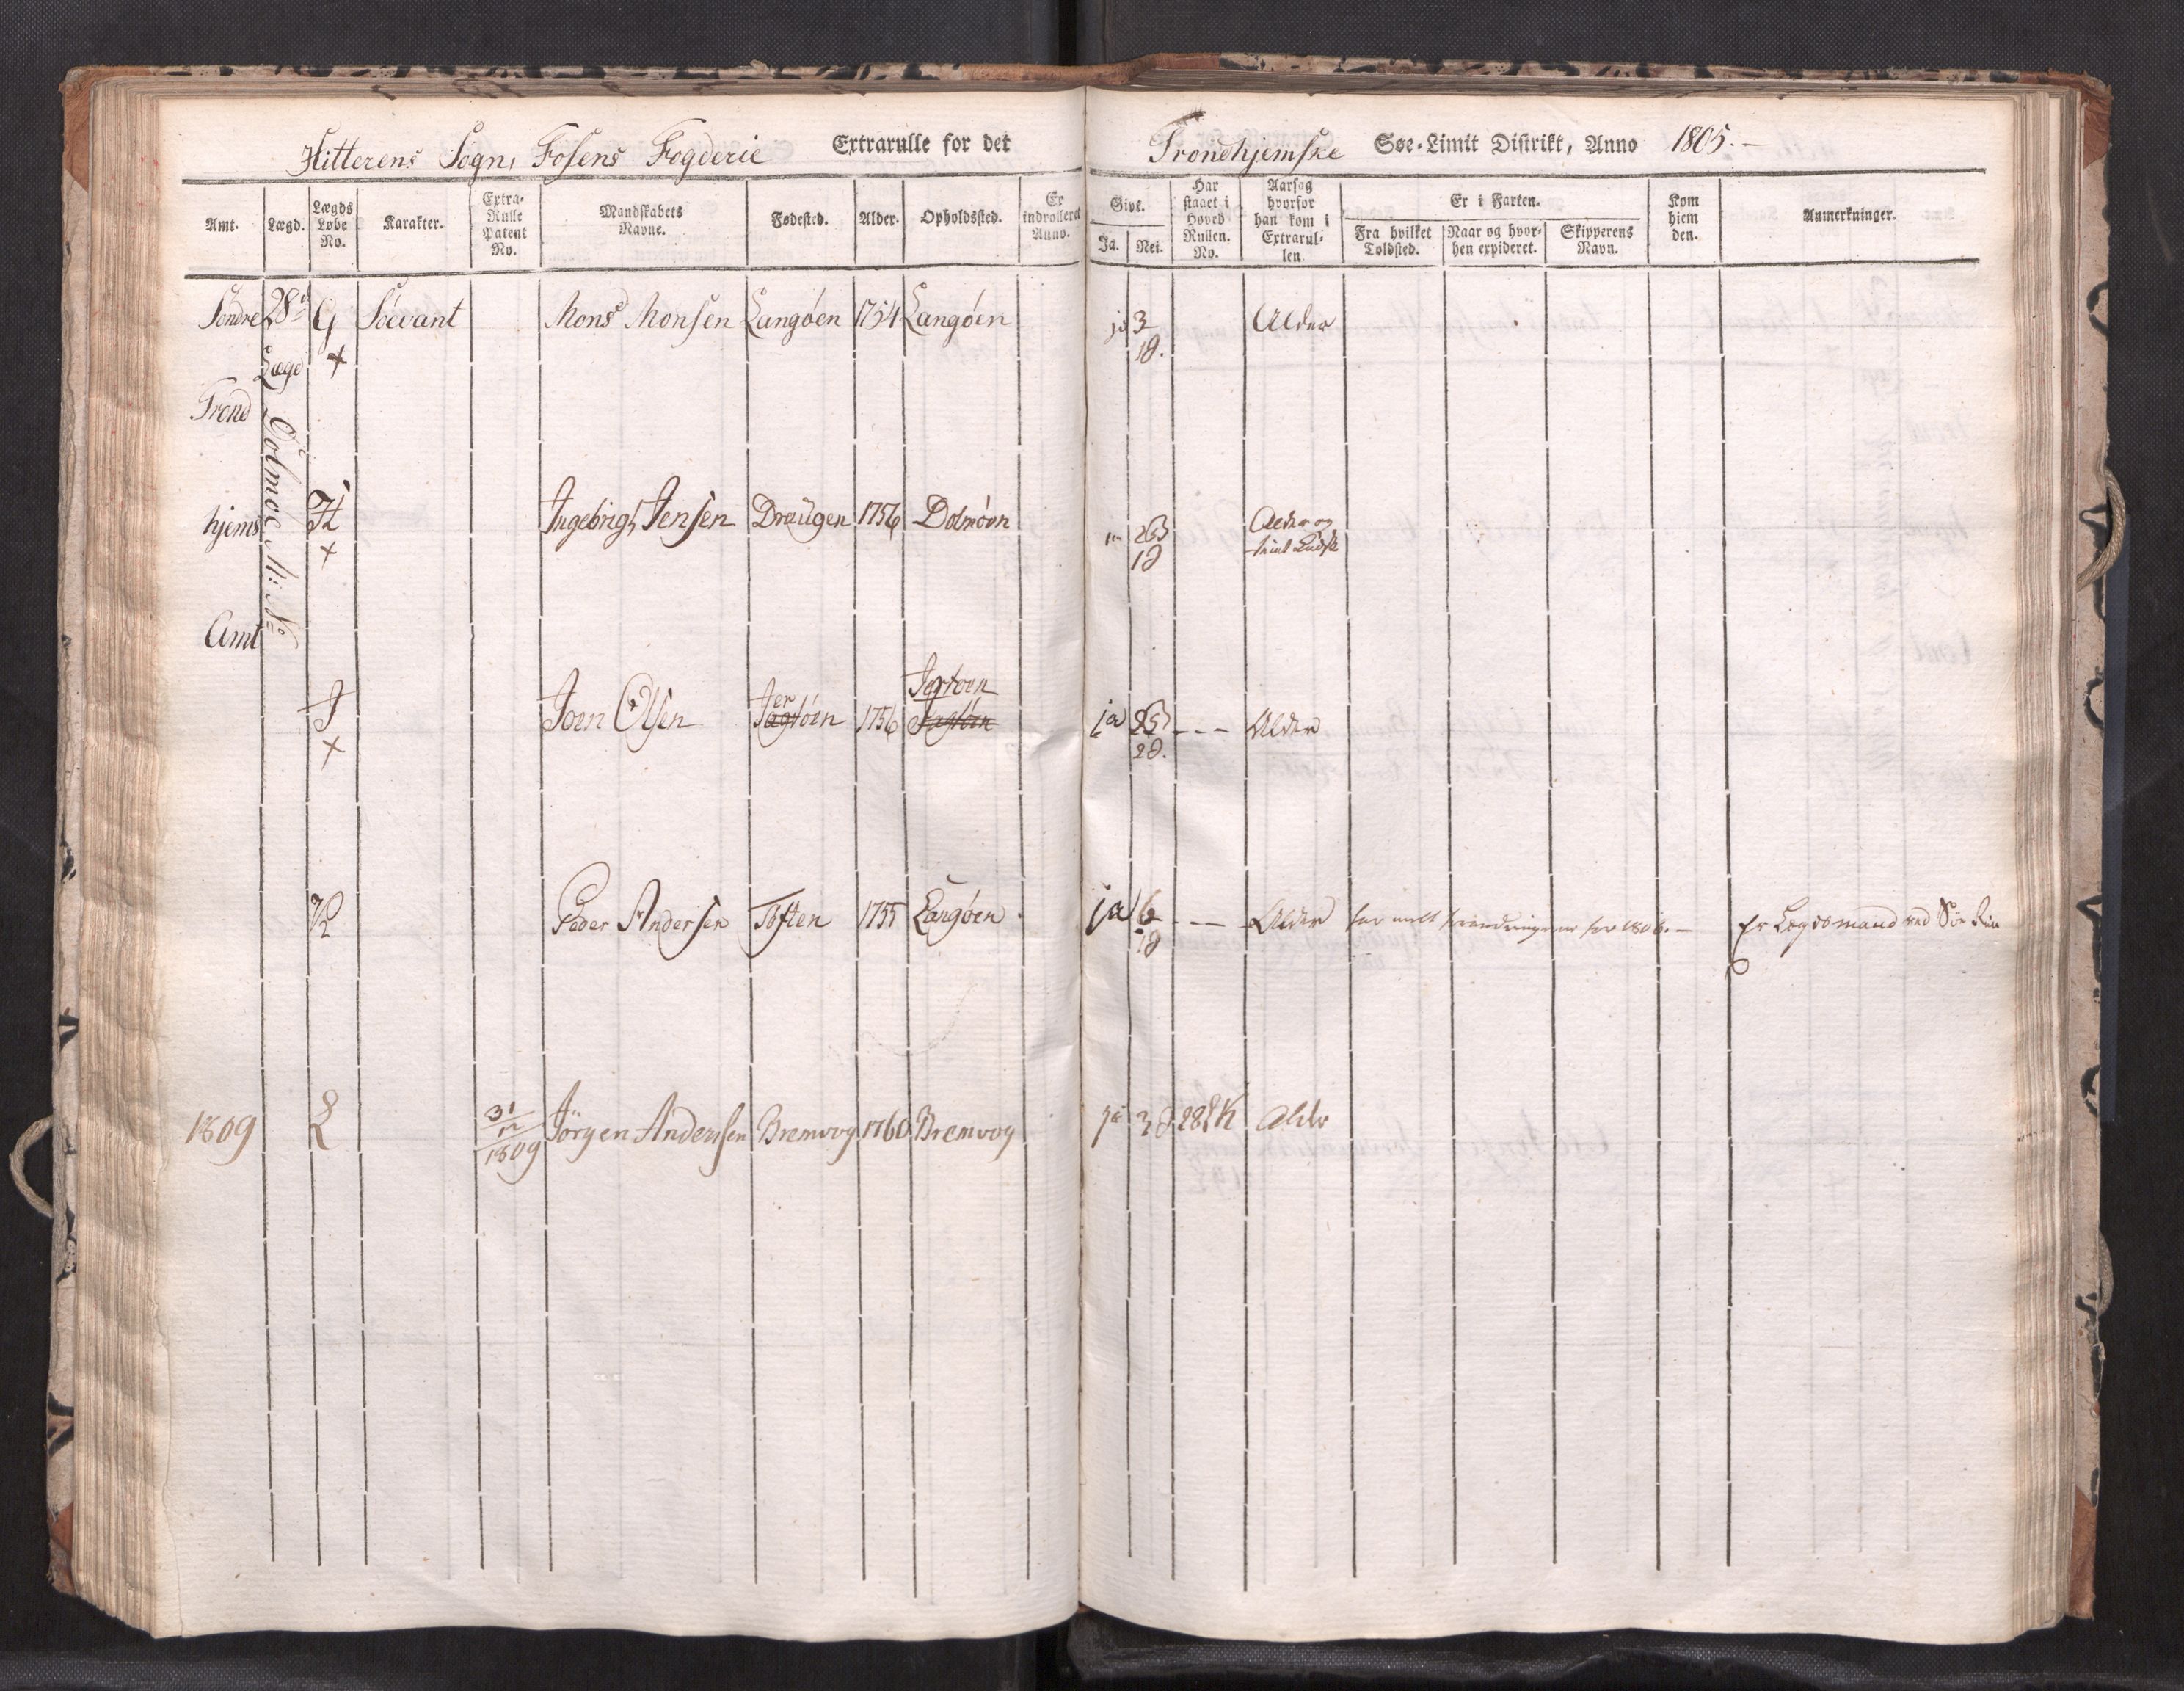 Hitterens Sogn, Fosens Fogderie Extrarulle for det Trondhjemske Søe-Limit Distrikt, Anno 1805.-
Amt. Lægd. Lægds Løbe No. Karakter. Extra-Rulle Patent No. Mandskabets Navne. Fødested. Alder. Opholdssted. Er indrolleret Anno. Givt. Ja. Nei. Har staaet i Hoved Rullen. No. Aarsag hvorfor han kom i Extrarullen Er i Farten. Fra hvilket Toldsted. Naar og hvorhen expideret. Skipperens Navn. Kom hjem den. Anmerkninger.
Søndre 28d G Søevant Mons Monsen Langøen 1754 Langøen ja 3 Alder
Lægd + 1d.
Trond
Dolmøe N: No
hjems H Ingebrigt Jensen Draugen 1756 Dolmøen 2S Alder og
+ 1d
Amt
Jertøen
J Joen Olsen Jertøen 1756 ja 2S --- Alder
+ 2d.
K Peder Andersen Toften 1755 Langøen ja 6 --- Alder for 1806.- Er Legdsmand ved Søe
1d
1809 L 31/12 1809 Jørgen Anderssen Bremvog 1760 Bremvog ja 3d 28 K Alder